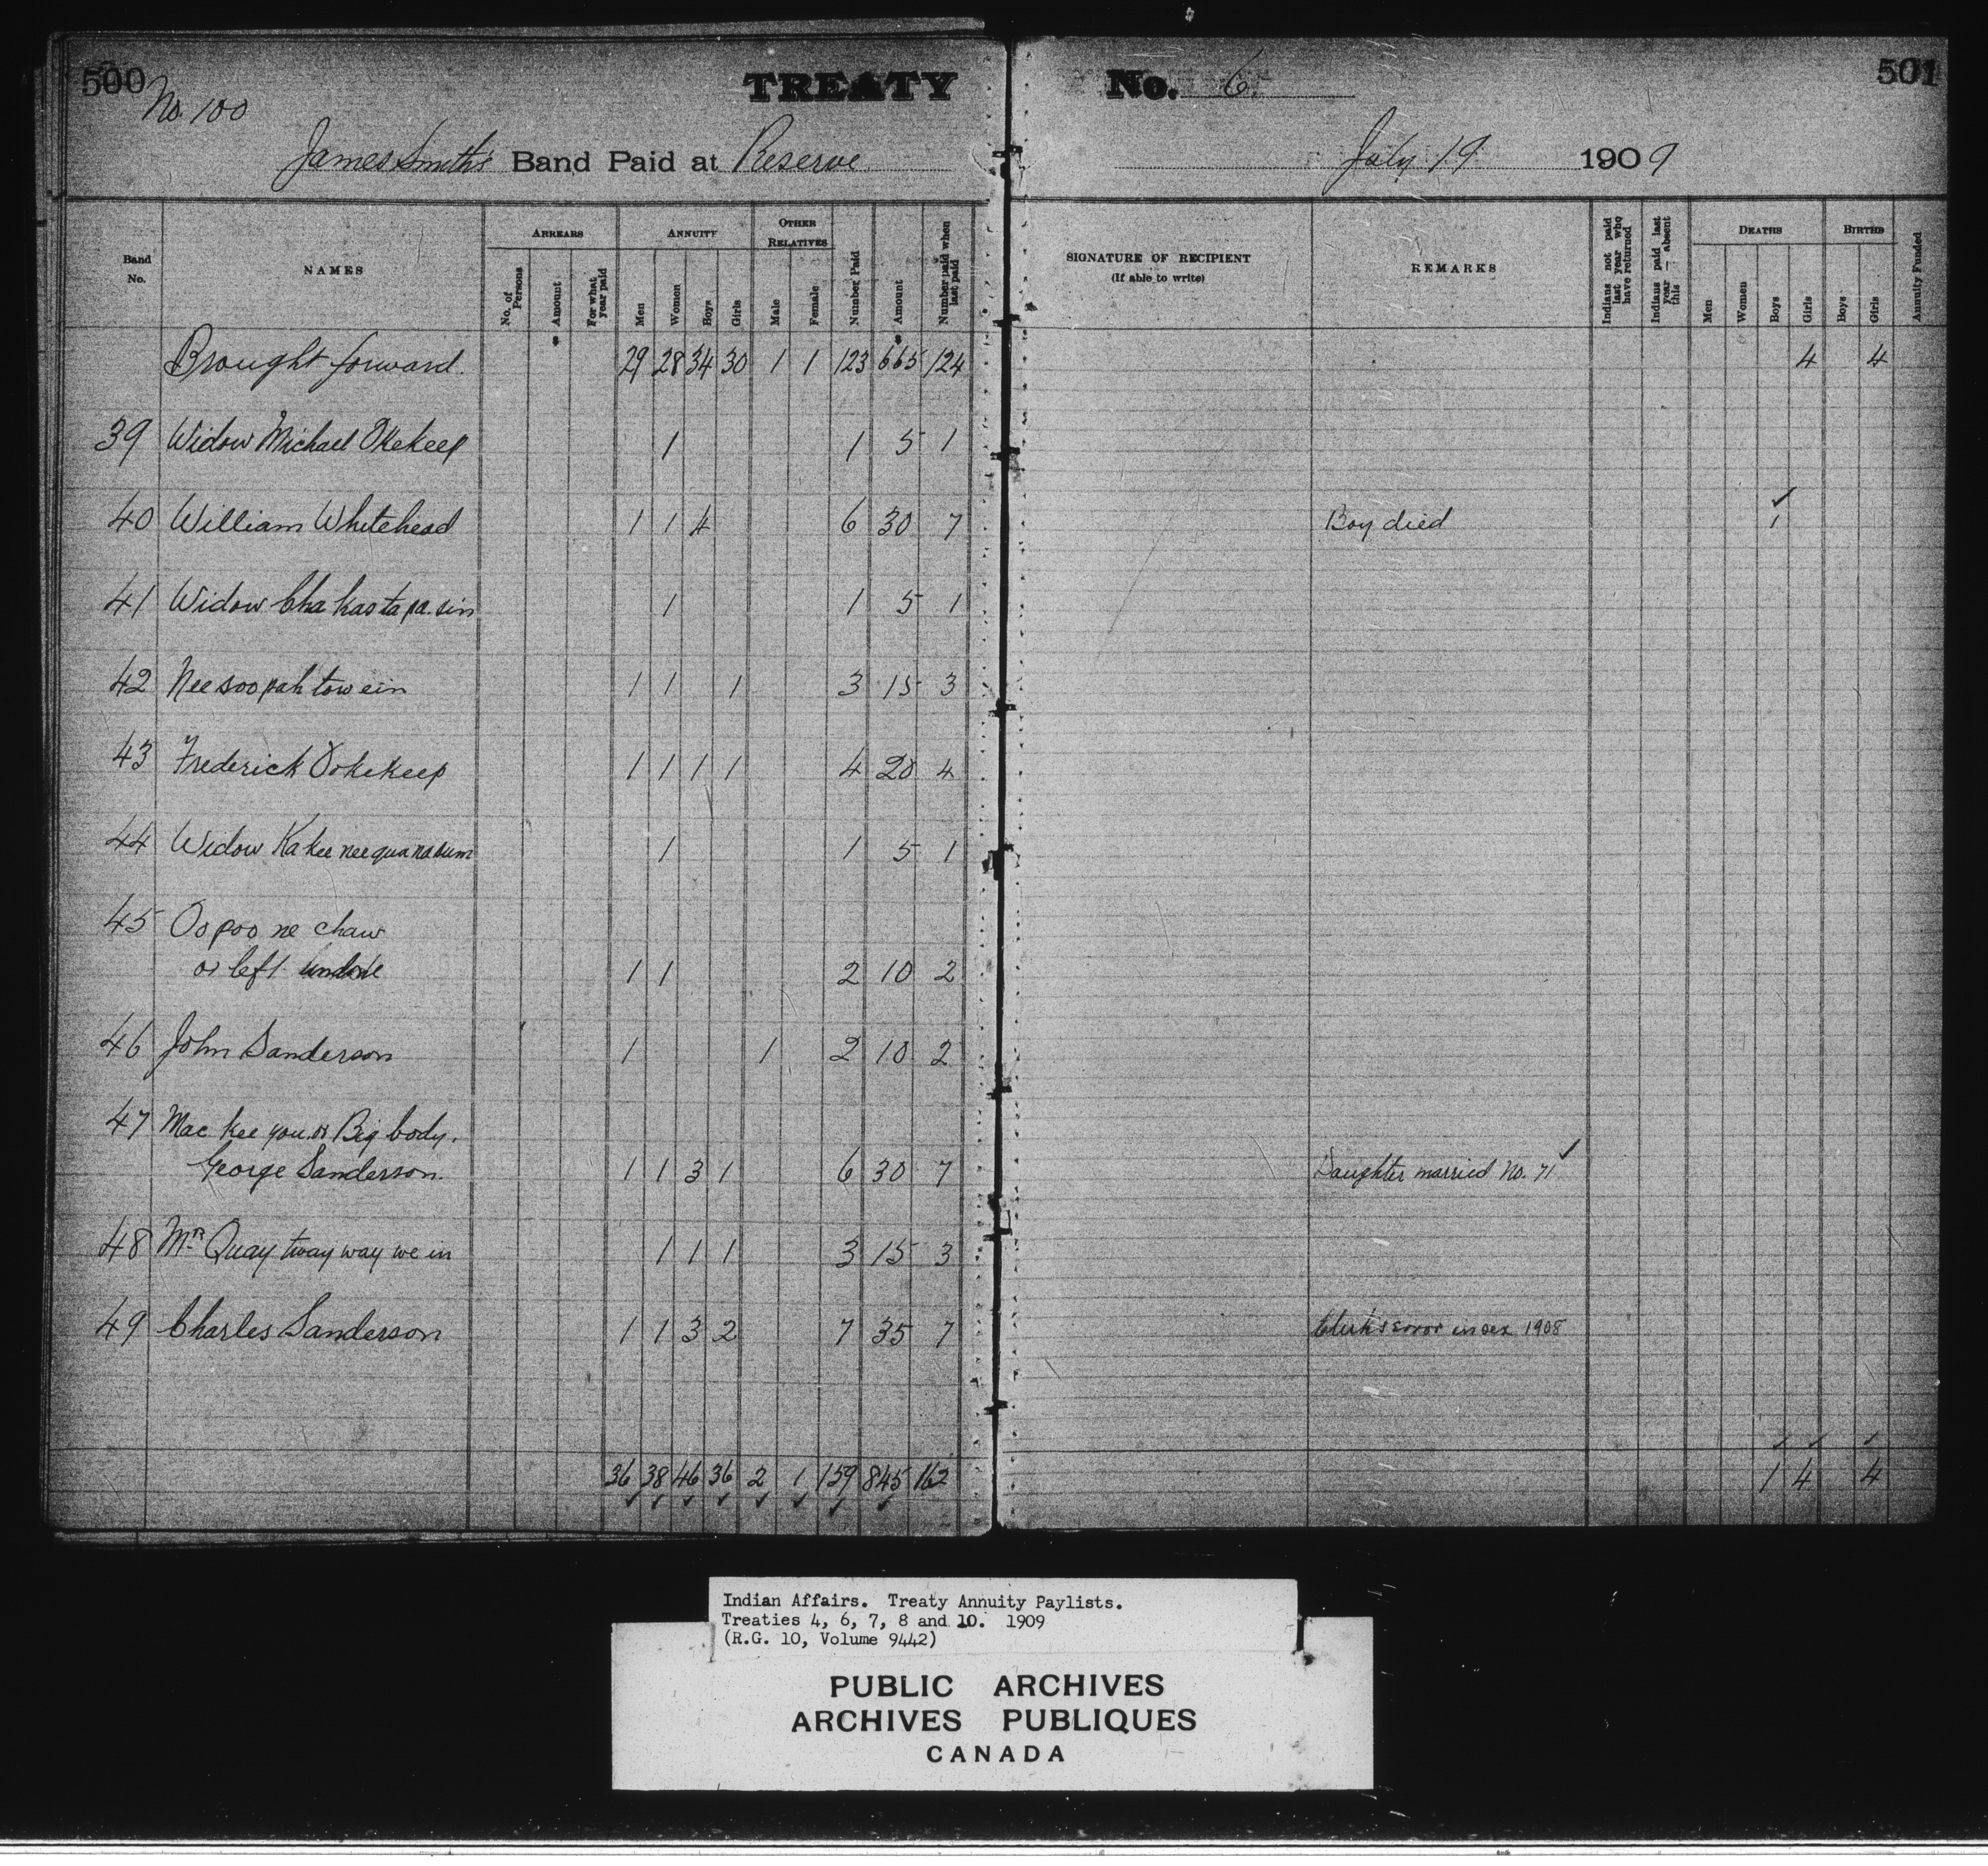 500
No. 100
TREATY No. 6.
501
James Smith's Band Paid at Reserve July 19 1909
Band No. NAMES ARREARS ANNUITY OTHER RELATIVES Number Paid Amount Number paid when last paid SIGNATURE OF RECIPIENT (If able to write) REMARKS Indians not paid last year who have returned Indians paid last year — absent this DEATHS BIRTHS Annuity Funded
No. of Persons Amount For what year paid Men Women Boys Girls Male Female Men Women Boys Girls Boys Girls
Brought forward. 29 28 34 30 1 1 123 665 124 4 4
39 Widow Michael Okekeep 1 1 5 1
40 William Whitehead 1 1 4 6 30 7 Boy died 1
41 Widow Cha kas ta pa. sin 1 1 5 1
42 Nee soo pah tow ein 1 1 1 3 15 3
43 Frederick Ookekeep 1 1 1 1 4 20 4
44 Widow Ka kee nee qua na sum 1 1 5 1
45 Oo poo ne chaw
or left undone 1 1 2 10 2
46 John Sanderson 1 1 2 10 2
47 Mac kee you. or Big body.
George Sanderson. 1 1 3 1 6 30 7 Daughter married No. 71
48 Mrs Quay tway way we in 1 1 1 3 15 3
49 Charles Sanderson 1 1 3 2 7 35 7 Clerk's error in sex 1908
36 38 46 36 2 1 159 845 162 1 4 4
Indian Affairs. Treaty Annuity Paylists.
Treaties 4, 6, 7, 8 and 10. 1909
(R.G. 10, Volume 9442)
PUBLIC ARCHIVES
ARCHIVES PUBLIQUES
CANADA